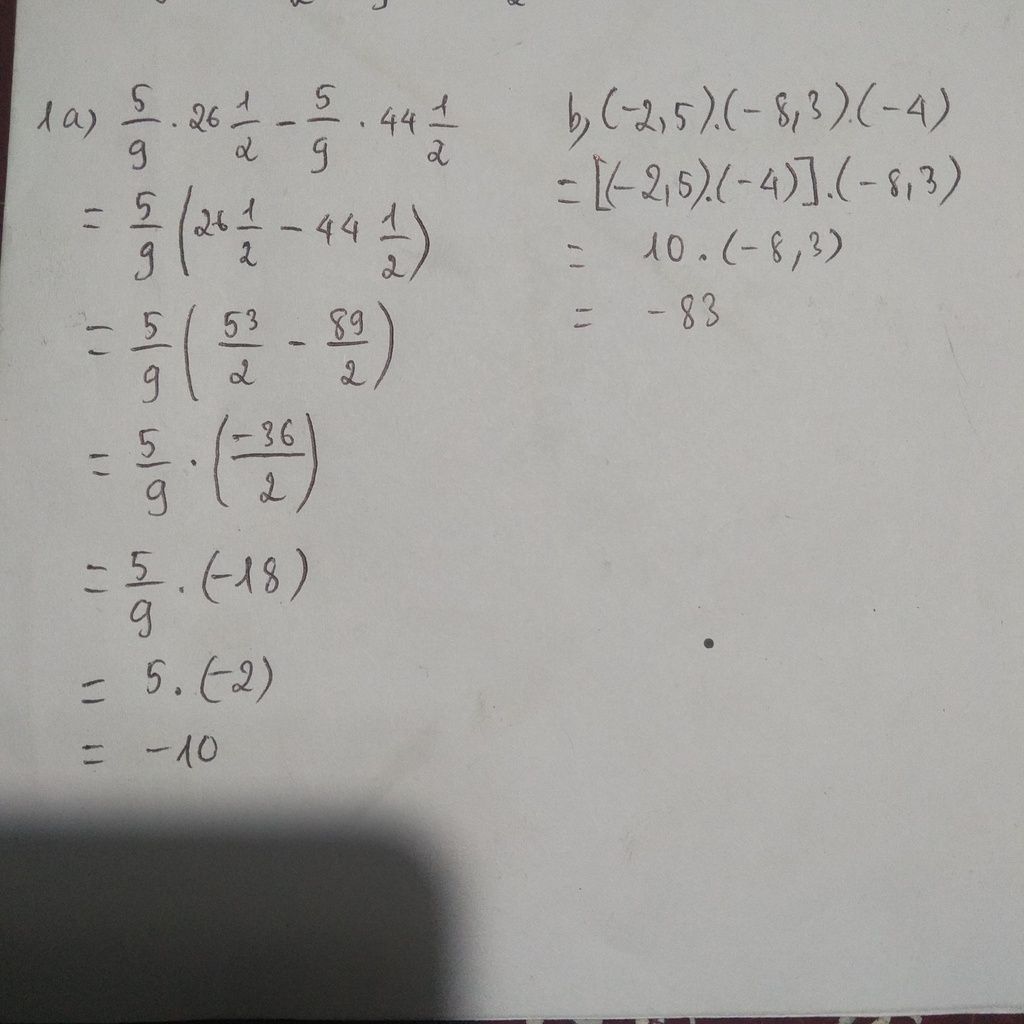 1a) 5/9 . 26 1/2 - 5/9 . 44 1/2
= 5/9 (26 1/2 - 44 1/2)
= 5/9 (53/2 - 89/2)
= 5/9 . (-36/2)
= 5/9 . (-18)
= 5 . (-2)
= -10
b, (-2,5).(-8,3).(-4)
= [(-2,5).(-4)].(-8,3)
= 10 . (-8,3)
= -83